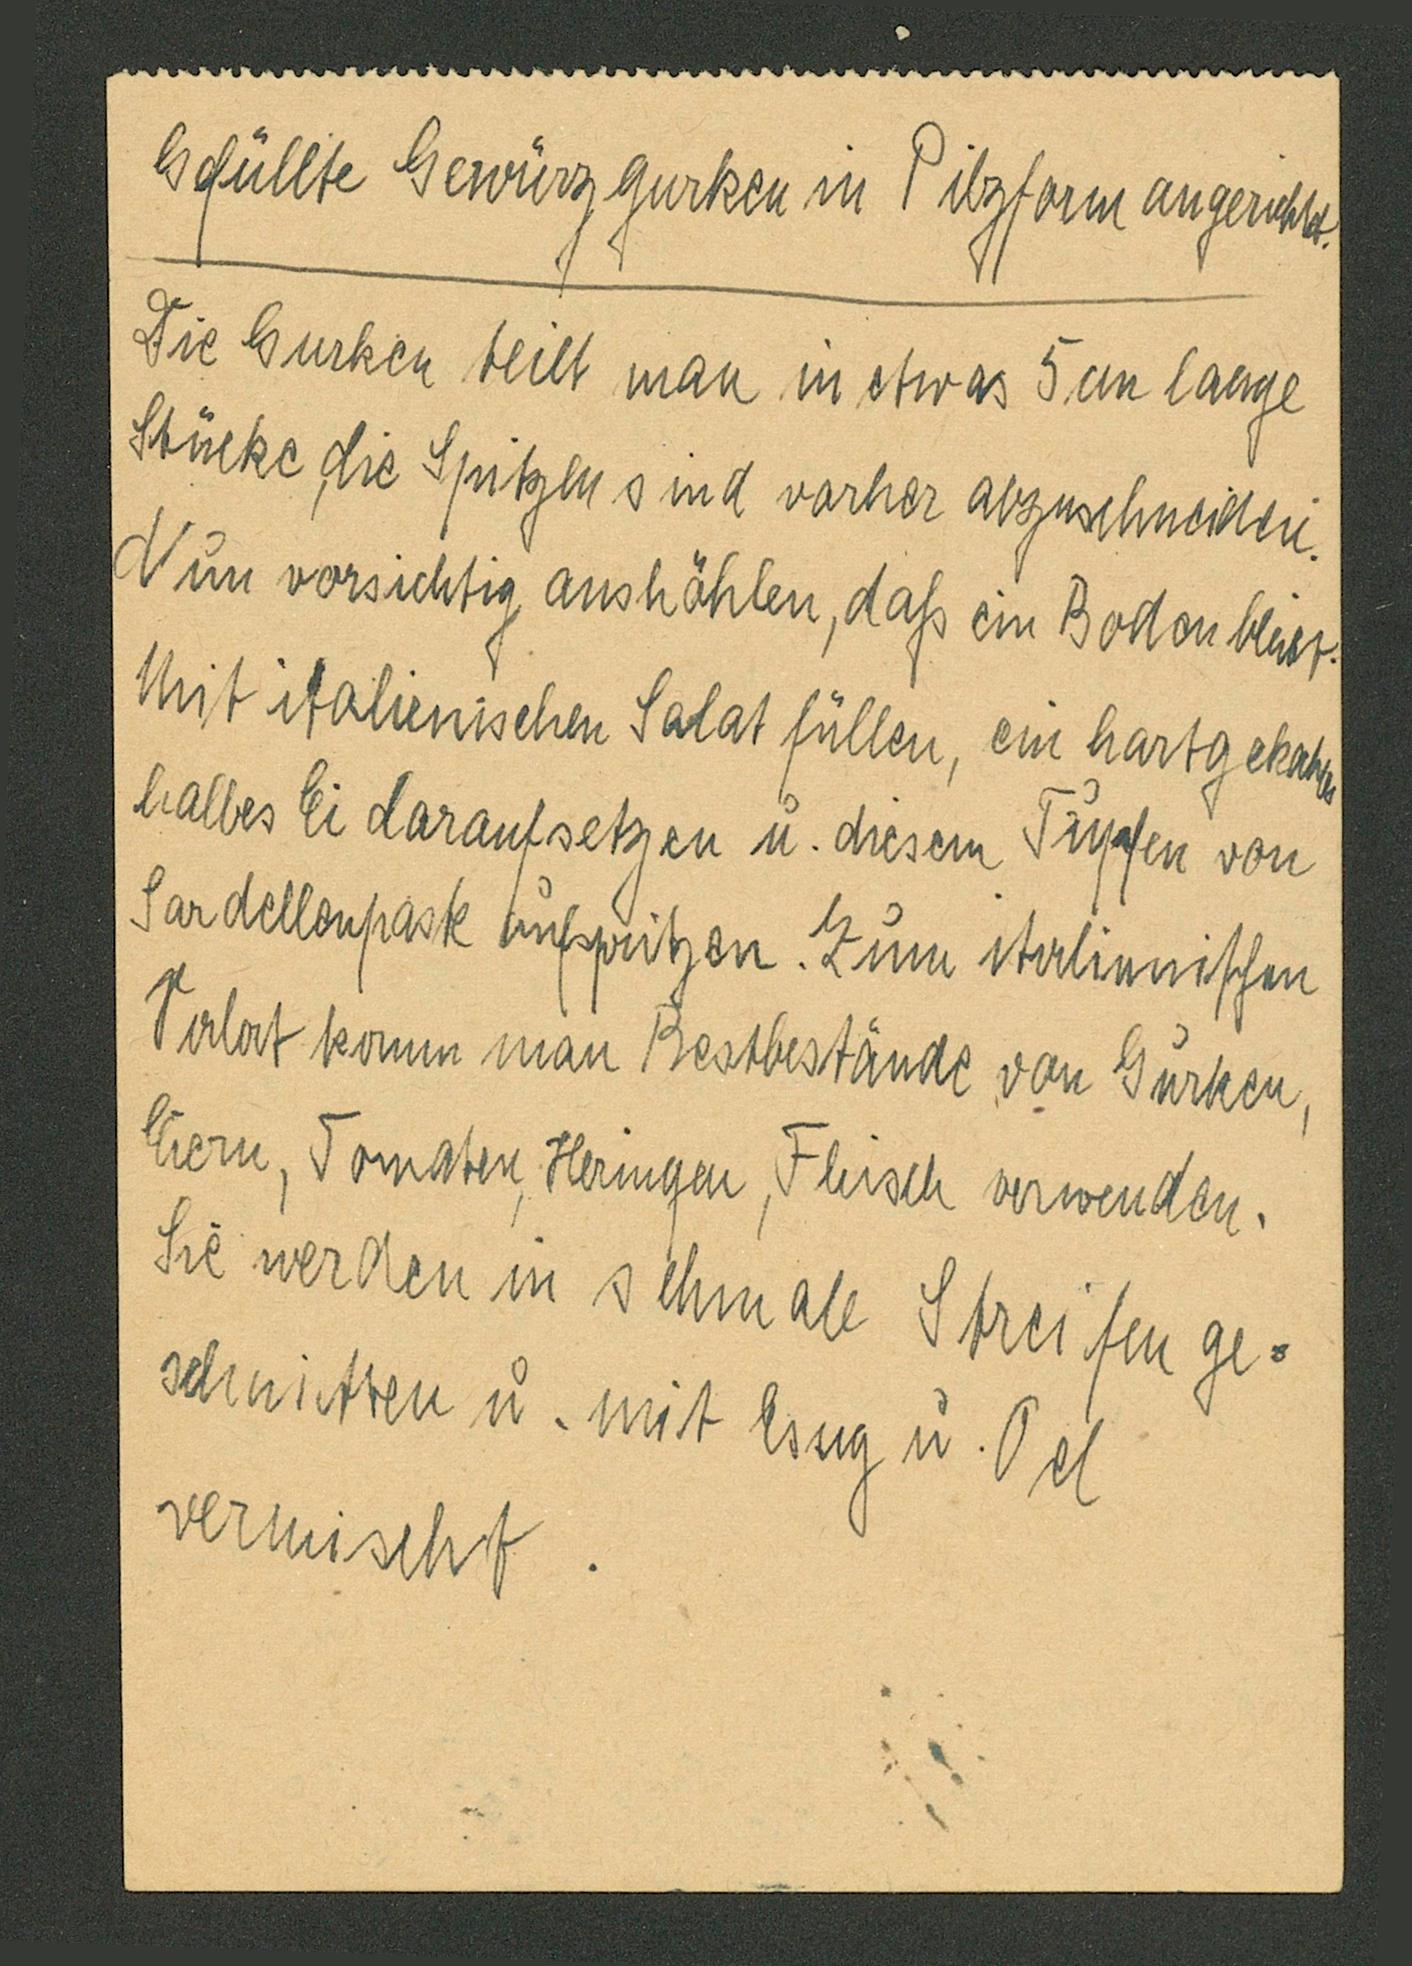 Gefüllte Gewürzgurken in Pilzform angerichtet.
Die Gurken teilt man in etwas 5 cm lange
Stücke, die Spitzen sind vorher abzuschneiden.
Nun vorsichtig aushöhlen, daß ein Boden bleibt.
Mit italienischen Salat füllen, ein hartgekochtes
halbes Ei daraufsetzen u. diesem Tupfen von
Sardellenpaste aufspritzen. Zum italienischen
Salat kann man Restbestände von Gurken,
Eiern, Tomaten, Heringen, Fleisch verwenden.
Sie werden in schmale Streifen ge-
schnitten u. mit Essig u. Oel
vermischt.